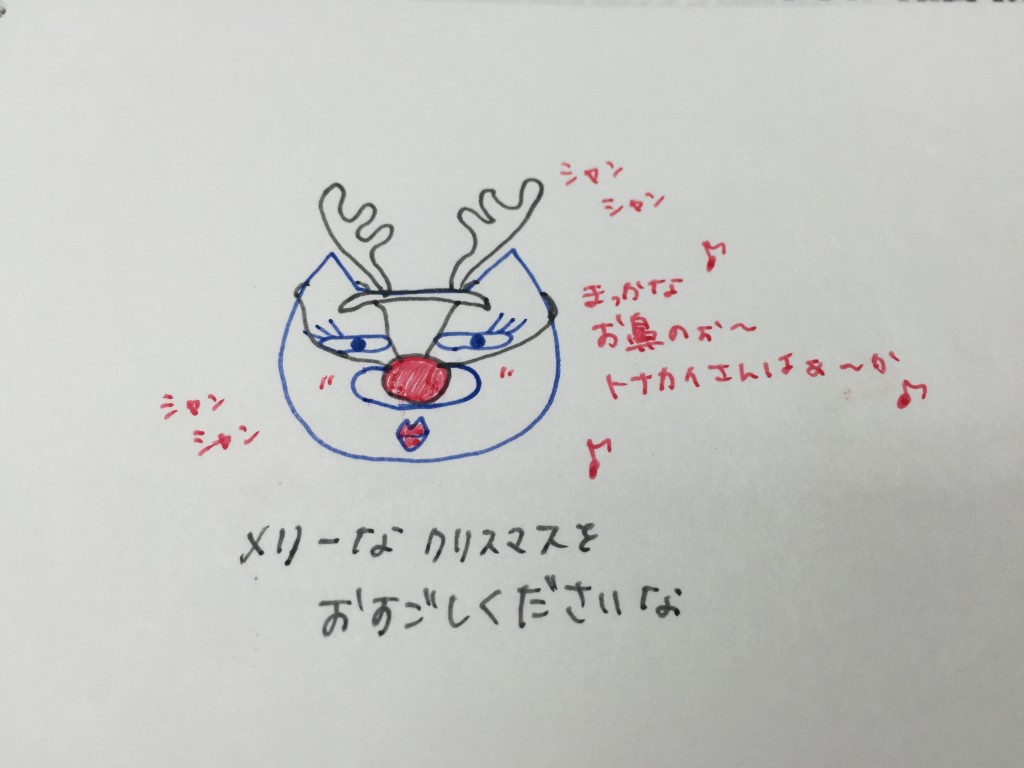 シャン
シャン
まっかな
お鼻のぉ〜
トナカイさんはぁ〜か
シャン
シャン
メリーな クリスマスを
おすごしくださいな